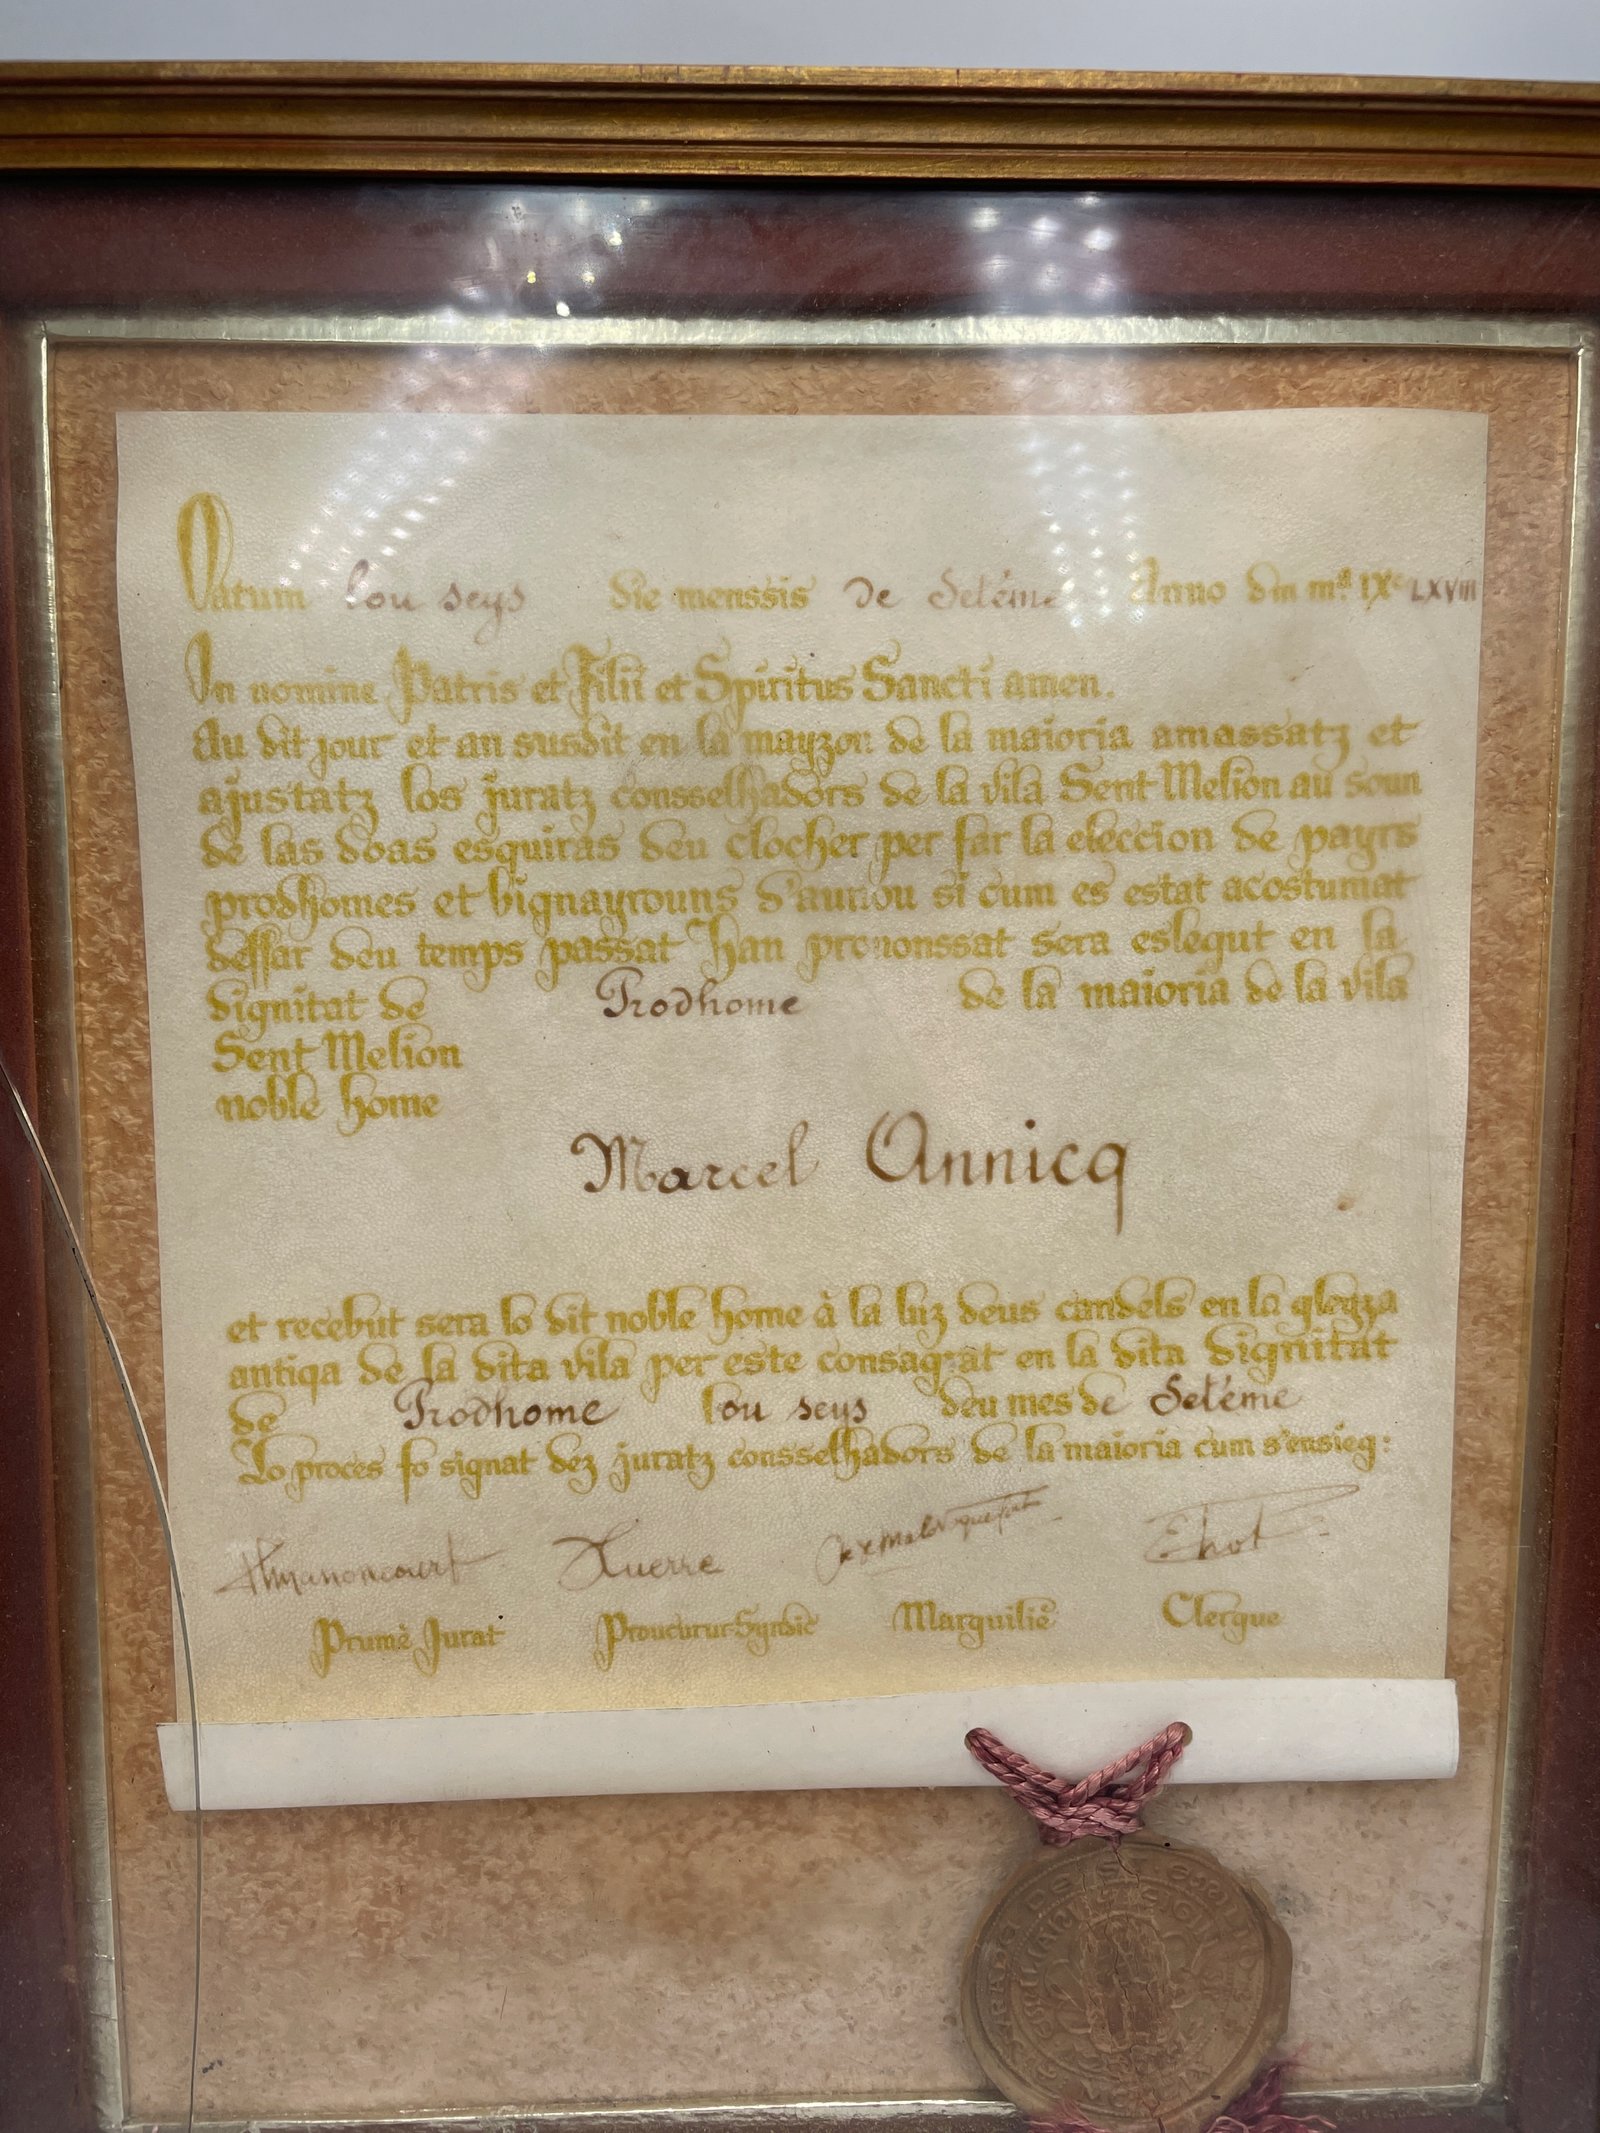 Datum lou seys die menssis de Setéme Anno dm mª IXᶜ LXVIII
In nomine Patris et Filii et Spiritus Sancti amen.
Au dit jour et an susdit en la mayzon de la maioria amassatz et
ajustatz los juratz consselhadors de la vila Sent Melion au soun
de las doas esquiras deu clocher per far la eleccion de payrs
prodhomes et vignayrouns d'auriou si cum es estat acostumat
deffar deu temps passat Han prononssat sera eslegut en la
dignitat de Prodhome de la maioria de la vila
Sent Melion
noble home
Marcel Annicq
et recebut sera lo dit noble home à la luz deus candels en la gleyza
antiqa de la dita vila per este consagrat en la dita dignitat
de Prodhome lou seys deu mes de Setéme
Lo proces fo signat dez juratz consselhadors de la maioria cum s'ensieg:
Querre
Prumê Jurat Proucurur-Syndic Marguiliê Clergue